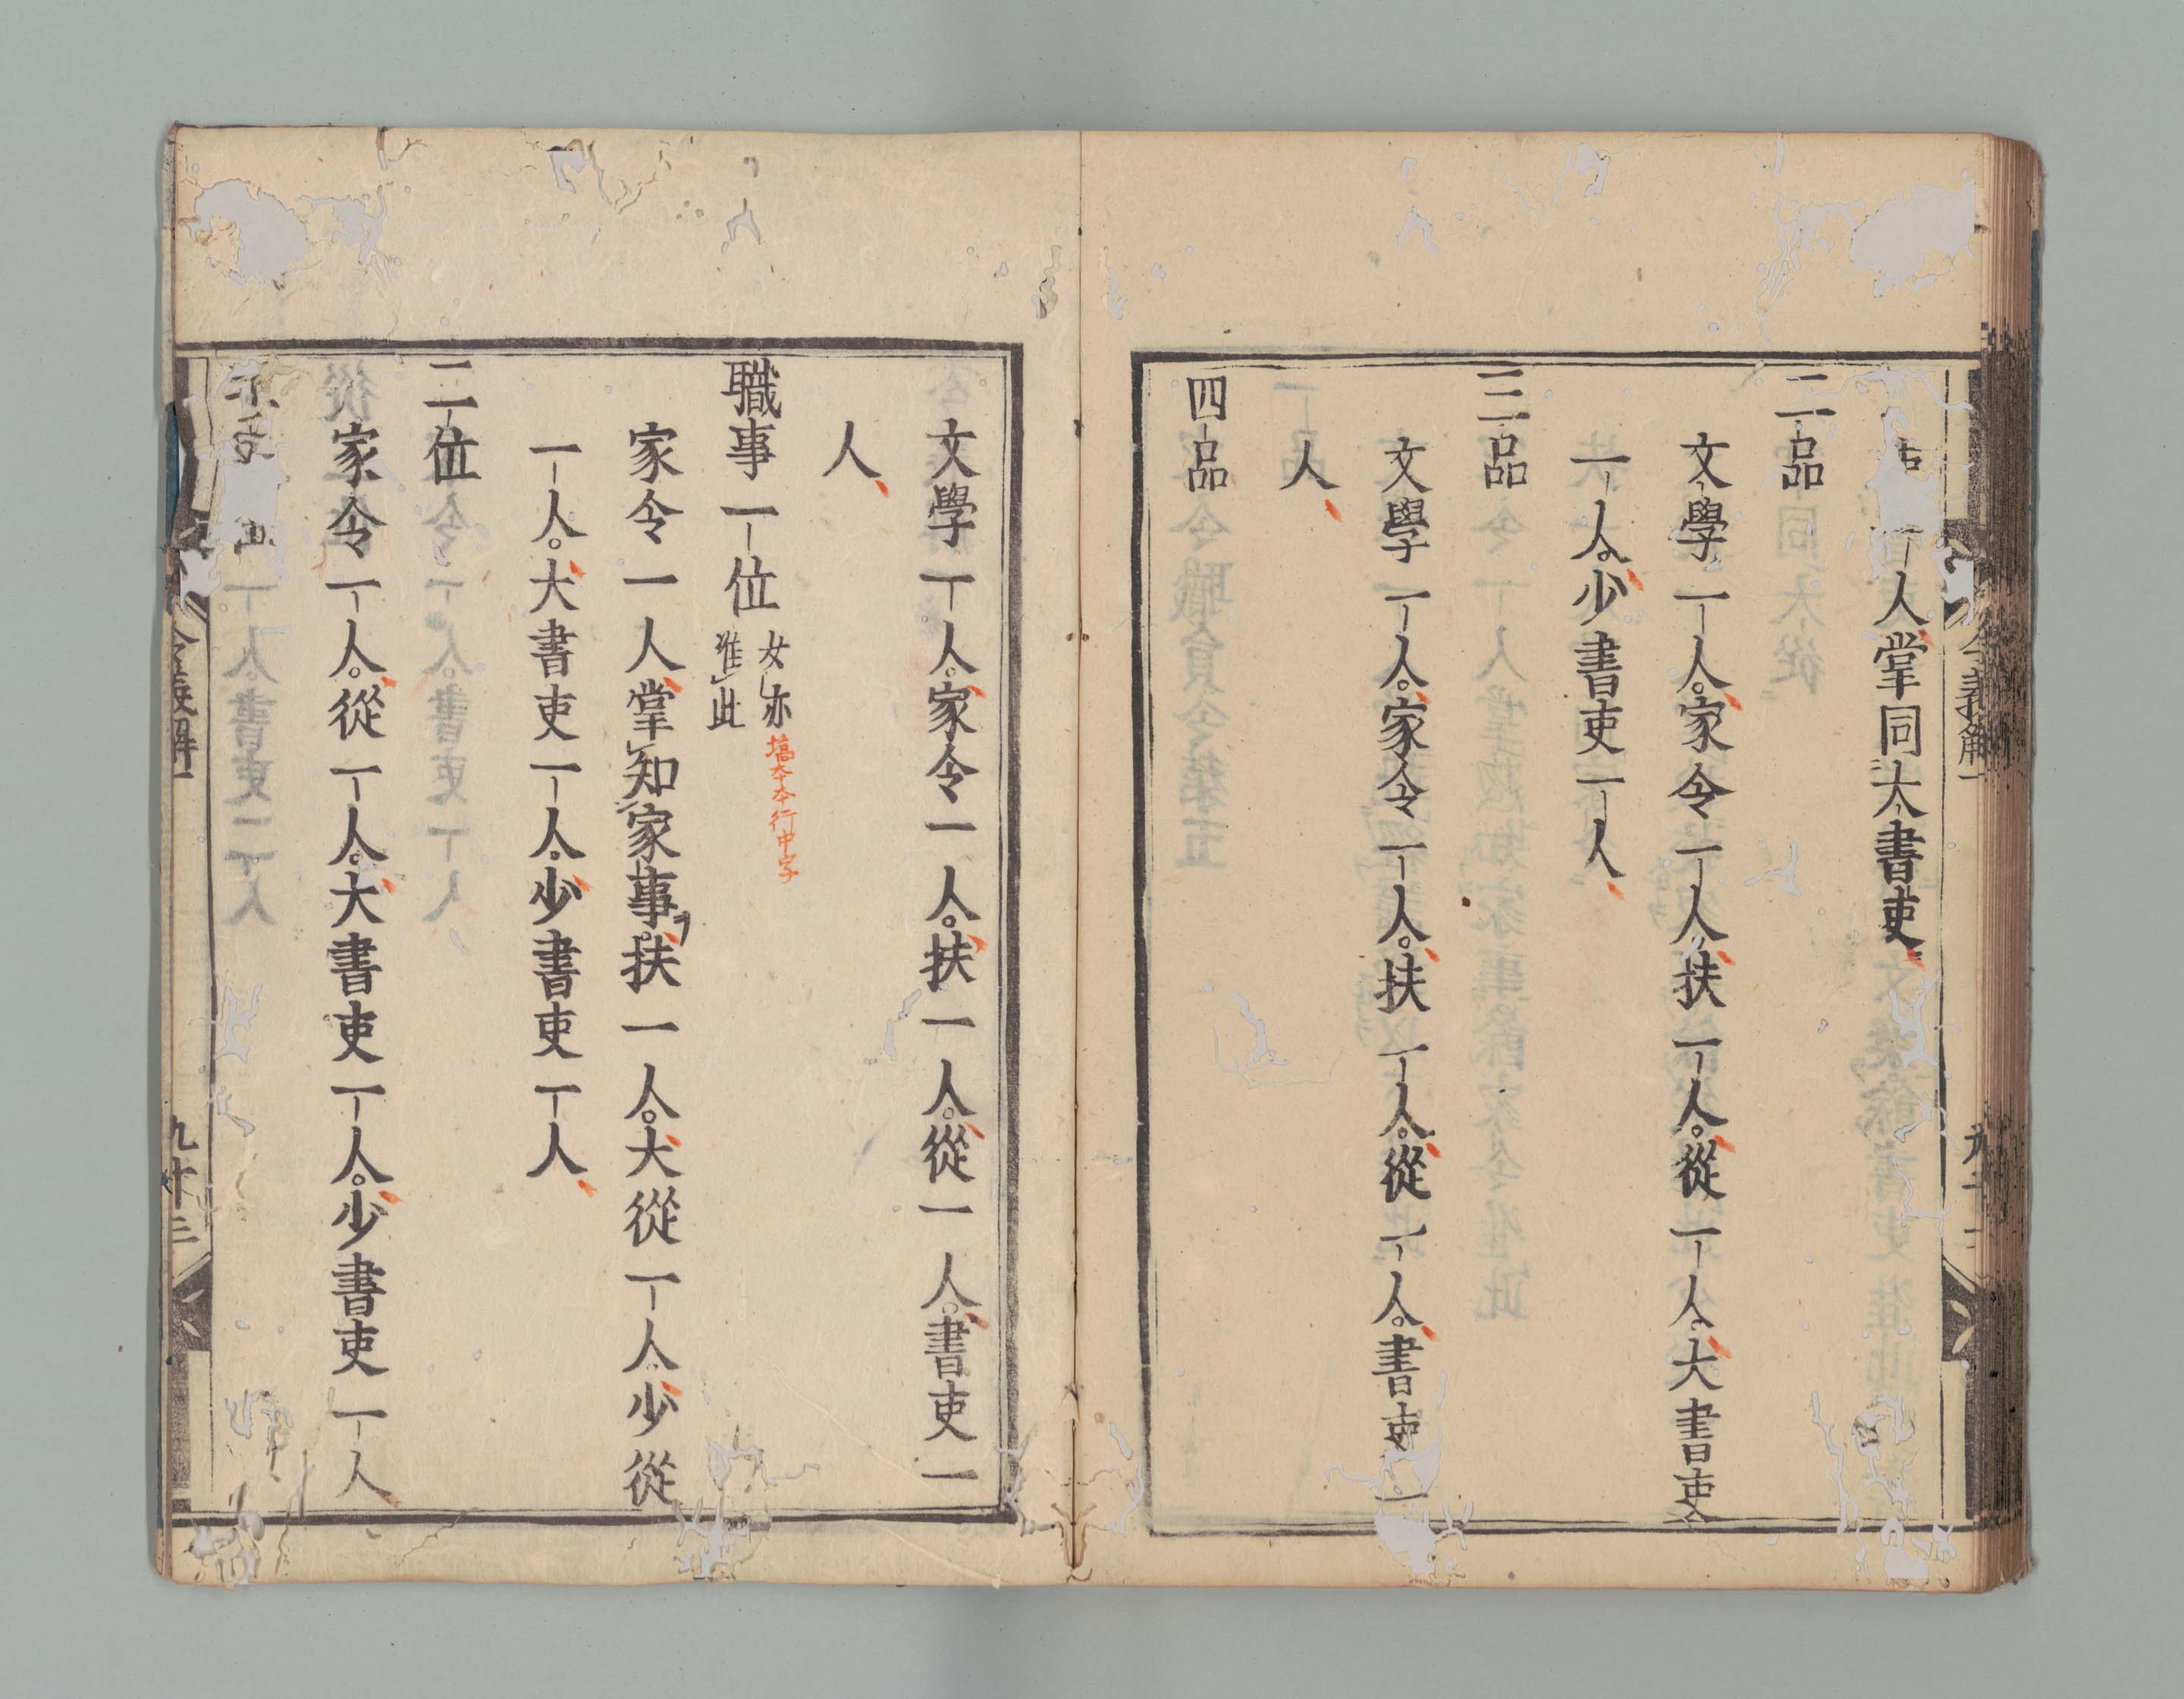 一人掌同大書吏
二品
文學一人家令一人扶一人從一人大書吏
一人少書吏一人
三品
文學一人家令一人扶一人從一人書吏一
人
四品
文學一人家令一人扶一人從一人書吏一
人
職事一位女亦准此
塙本本行中字
家令一人掌知家事扶一人大從一人少從
一人大書吏一人少書吏一人
二位
家令一人從一人大書吏一人少書吏一人
令義解一
九十三